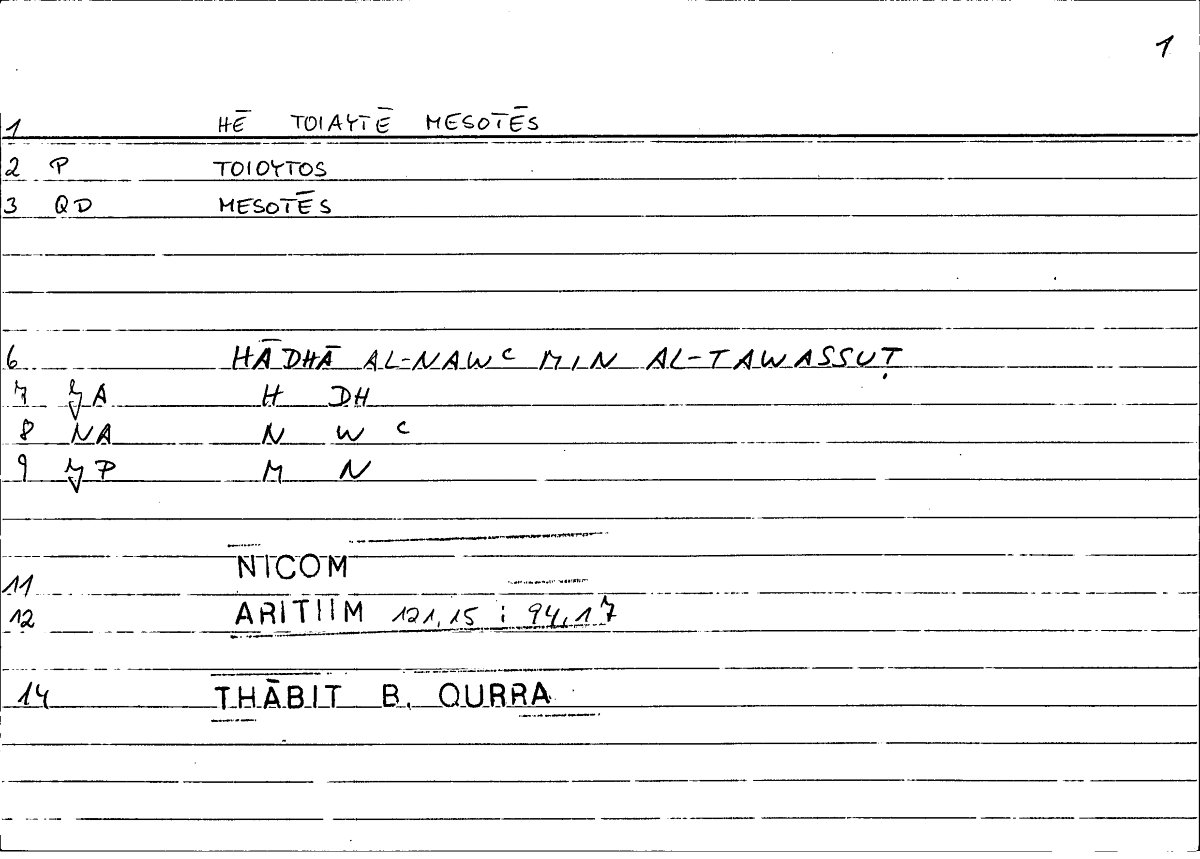 1
1 HĒ TOIAYTĒ MESOTĒS
2 P TOIOYTOS
3 QD MESOTĒS
6 HĀDHĀ AL-NAWᶜ MIN AL-TAWASSUṬ
7 A H DH
8 NA N W ᶜ
9 P M N
11 NICOM
12 ARITIIM 121,15 ; 94,17
14 THĀBIT B. QURRA